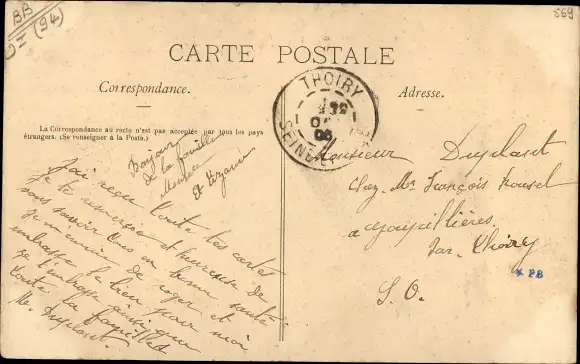 BB
(94)
569
CARTE POSTALE
Correspondance.
Adresse.
La Correspondance au recto n'est pas acceptée par tous les pays
étrangers. (Se renseigner à la Poste.)
THOIRY
06
SEINE
Bonjour
de la famille
et
J'ai reçu toute tes cartes
je te remercie et heureuse de
vous savoir tous en bonne santé
je m'ennuie de roger et
embrasse le bien pour moi
je t'embrasse ainsi que
toute la famille
M. Duplaut.
Monsieur Duplaut
Chez Mr François Rousel
a Goupillières
Par Thoiry
S. O.
PB